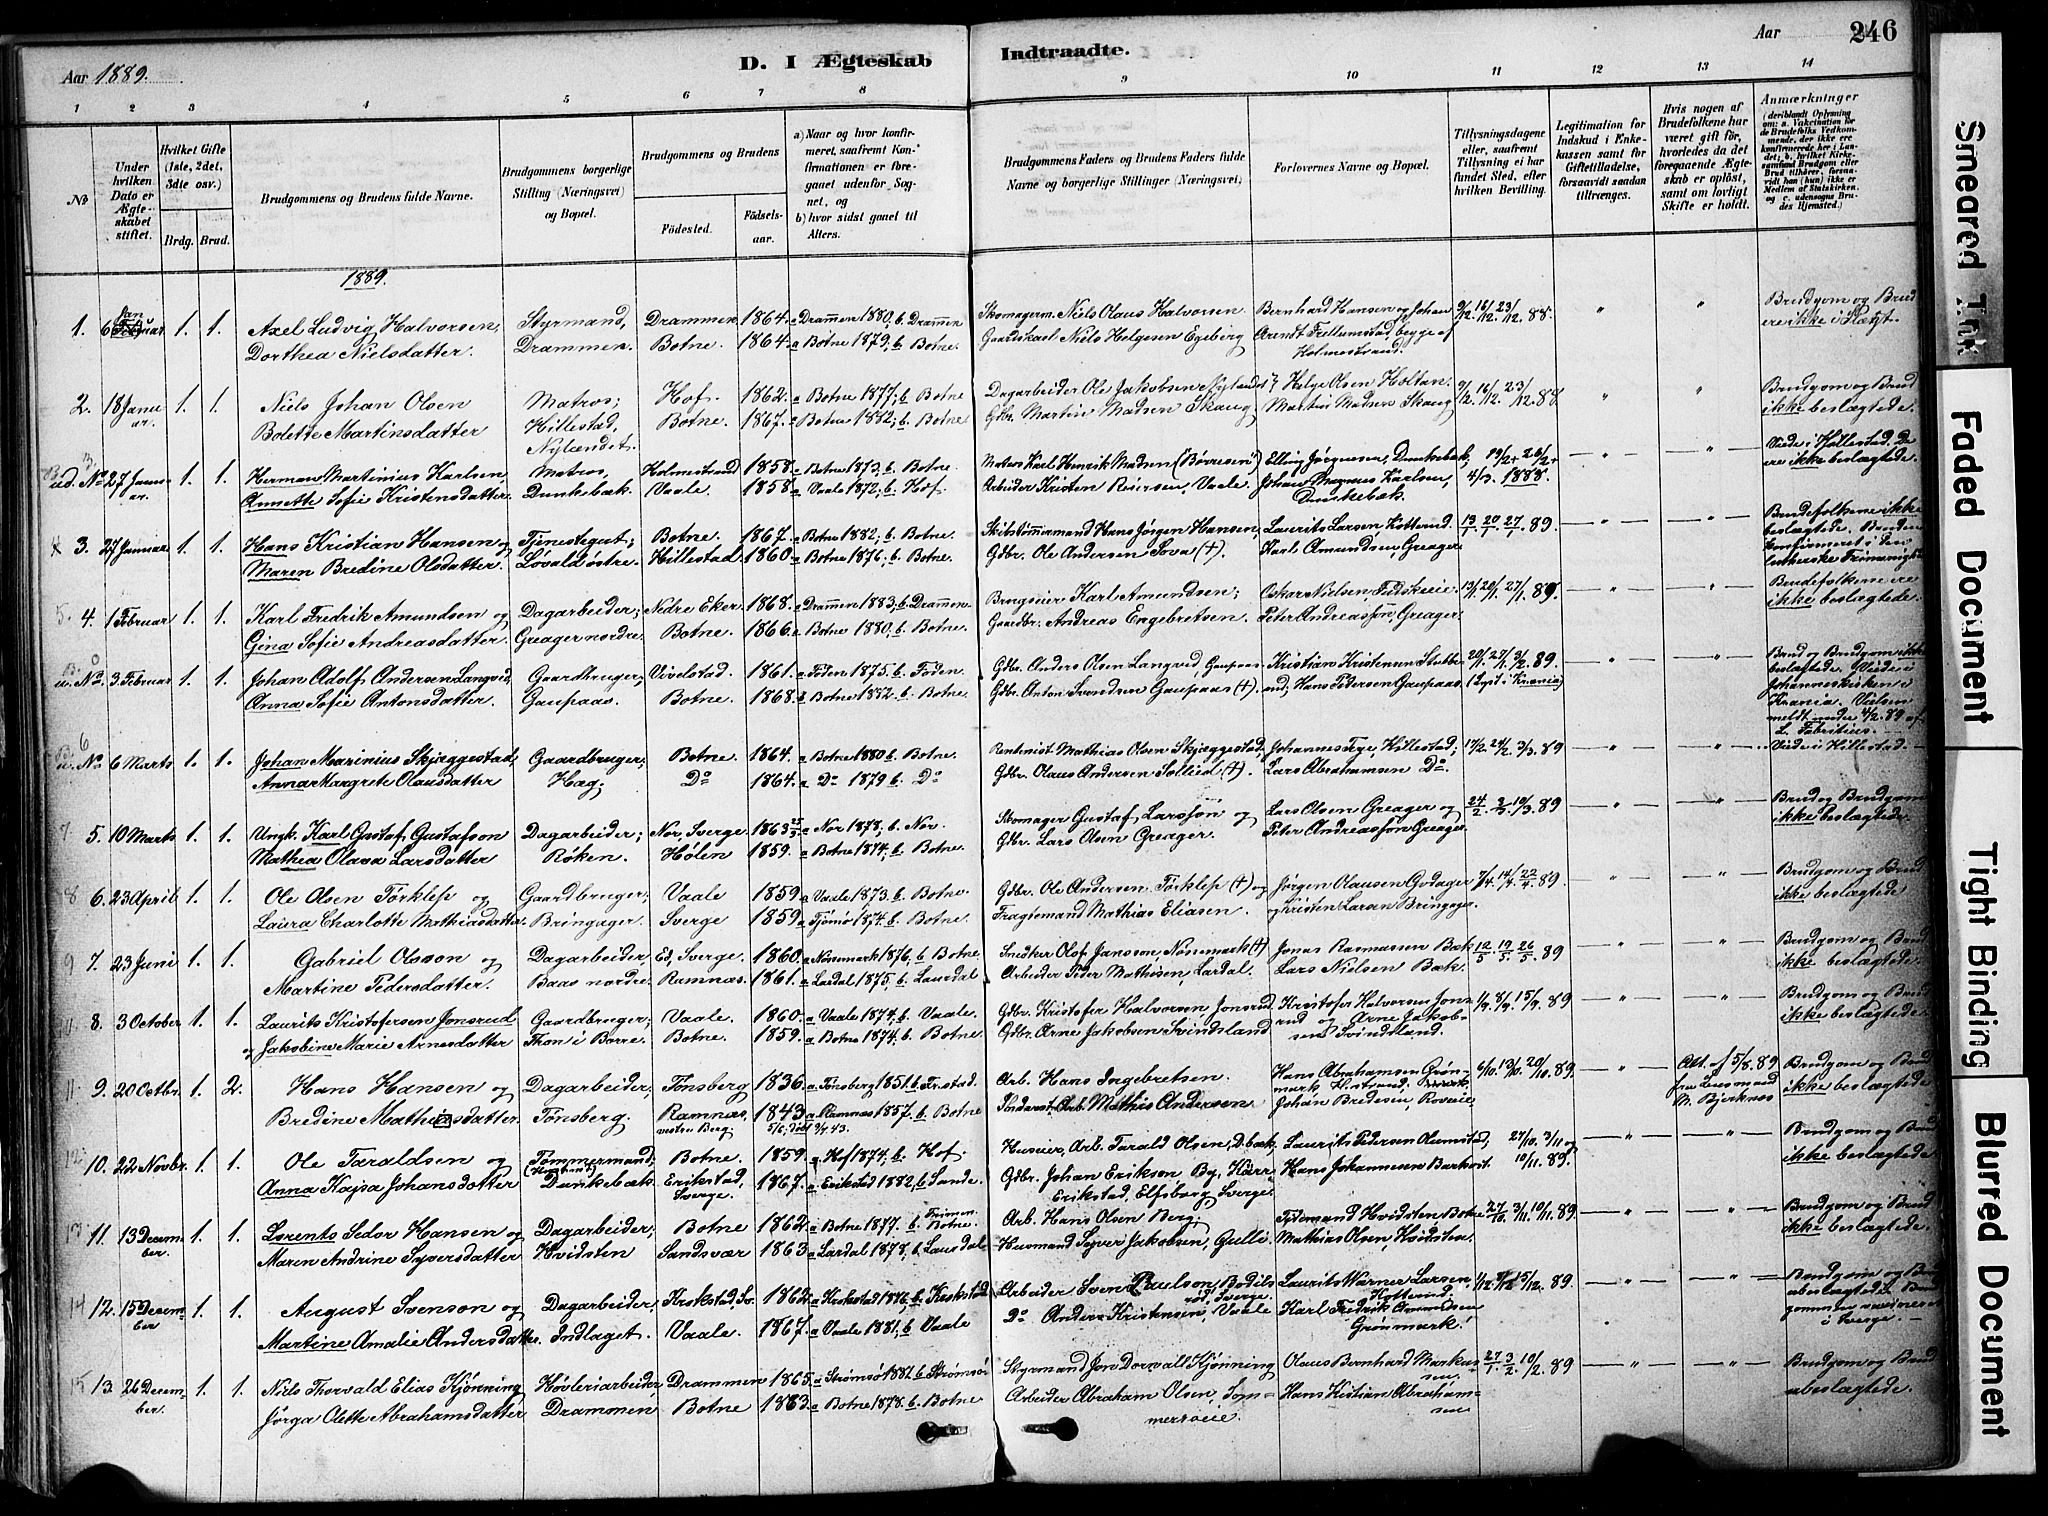 Aar 1889.
D. I Ægteskab Indtraadte.
Aar 246
1 2 3 4 5 6 7 8 9 10 11 12 13 14
No
Under hvilken Dato er Ægteskabet stiftet.
Hvilket Gifte (1ste, 2det, 3die osv.)
Brdg. Brud.
Brudgommens og Brudens fulde Navne.
Brudgommens borgerlige Stilling (Næringsvei) og Bopæl.
Brudgommens og Brudens
Födested.
Födselsaar.
a) Naar og hvor konfirmeret, saafremt Konfirmationen er foregaaet udenfor Sognet, og
b) hvor sidst gaaet til Alters.
Brudgommens Faders og Brudens Faders fulde Navne og borgerlige Stillinger (Næringsvei).
Forlovernes Navne og Bopæl.
Tillysningsdagene eller, saafremt Tillysning ei har fundet Sted, efter hvilken Bevilling.
Legitimation for Indskud i Enkekassen samt for Giftetilladelse, forsaavidt saadan tiltrænges.
Hvis nogen af Brudefolkene har været gift før, hvorledes da det foregaaende Ægteskab er oplöst, samt om lovligt Skifte er holdt.
Anmærkninger (deriblandt Oplysning om: a. Vakcination for de Brudefolks Vedkommende, der ikke ere konfirmerede her i Landet; b. hvilket Kirkesamfund Brudgom eller Brud tilhörer, forsaavidt han (hun) ikke er Medlem af Statskirken, og c. udensogns Brudes Hjemsted.)
1889.
1. 6 Januar 1. 1. Axel Ludvig Halvorsen, Styrmand, Drammen 1864. a Drammen 1880, b. Drammen Skomagerm. Niels Olaus Halvorsen Bernhard Hansen og Johan 9/12. 16/12. 23/12. 88. " " Brudgom og Brud
Dorthea Nielsdatter. Drammen. Botne. 1864. a Botne 1879, b. Botne. Gaardskarl Niels Helgesen Egeberg Arendt Frellumstad, begge af Holmestrand. ere ikke i Slægt.
2. 18 Januar. 1. 1. Niels Johan Olsen Matros; Hof. 1862. a Botne 1877; b Botne Dagarbeider Ole Jakobsen Nylandet Helge Olsen Holtan. 9/12. 16/12. 23/12. 88. " " Brudgom og Brud
Bolette Martinsdatter Hillestad, Nylændet. Botne. 1867. a Botne 1882; b. Botne Gdbr. Martin Madsen Skaug Martin Madsen Skaug ikke beslægtede.
ud. No 27 Januar. 1. 1. Herman Martinius Karlsen, Matros, Holmestrand 1858. a Botne 1873, b. Botne. Matros Karl Henrik Madsen ("Børresen") Elling Jørgensen, Dunkebæk, 19/2 + 26/2 + — " — " — Viede i Hillestad. De
Annette Sofie Kristensdatter. Dunkebæk. Vaale. 1858. a Vaale 1872; b. Hof. Arbeider Kristen Reiersen, Vaale. Johan Magnus Karlsen, Dunkebæk 4/3. 1888. ere ikke beslægtede.
3. 27 Januar. 1. 1. Hans Kristian Hansen og Tjenestegut; Botne. 1867. a Botne 1882; b. Botne. Skibstømmermand Hans Jørgen Hansen, Laurits Larsen Kotterud. 13/1 20/1 27/1. 89. — " — " — Brudefolkene ikke
Maren Bredine Olsdatter. Løvald østre. Hillestad. 1860. a Botne 1876; b. Botne. Gdbr. Ole Andersen Sova (+). Karl Amundsen, Greager. beslægtede. Bruden konfirmeret i Den lutherske Frimenighed
5. 4. 1 Februar 1. 1. Karl Fredrik Amundsen og Dagarbeider; Nedre Eker. 1868. a Drammen 1883; b. Drammen. Brugseier Karl Amundsen; Oskar Nielsen Fidskeie. 13/1. 20/1. 27/1. 89. — " — " — Brudefolkene ere
Gina Sofie Andreasdatter. Greager nordre. Botne. 1866. a Botne 1880, b. Botne. Gaardbr. Andreas Engebretsen. Peter Andreassøn, Greager. ikke beslægtede.
u. No. 3 Februar 1. 1. Johan Adolf Andersen Langvid, Gaardbruger; Vivelstad. 1861. a Foden 1875, b. Foden. Gdbr. Anders Olsen Langvid, Gaupaas Kristian Kristensen Stubberud; 20/1. 27/1. 3/2. 89. — " — " — Brud og Brudgom ikke
Anna Sofie Antonsdatter. Gaupaas. Botne. 1868. a Botne 1882. b. Botne. Gdbr. Anton Svendsen Gaupaas (+). Hans Pedersen Gaupaas. beslægtede. Viede i Johanneskirken i Krania. Vielsen meldt under 4/2. 89 af L. Fabritius.
6
u. No 6 Marts 1. 1. Johan Marinius Skjeggestad, Gaardbruger; Botne. 1864. a Botne 1880 b. Botne. Rentenist Mathias Olsen Skjeggestad, Johannes Teye, Hillestad; 17/2. 24/2. 3/3. 89 — " — " — Viede i Hillestad. —
Anna Margrete Olausdatter Hag; Do 1864. a Do 1879 b. Do Gdbr. Olaus Andersen Sollied (+). Lars Abrahamsen Do.
7 5. 10 Marts 1. 1. Ungk. Karl Gustaf Gustafson Dagarbeider; Nor, Sverge. 1863 a Nor 1878, b. Nor. Skomager Gustaf Larsson og Lars Olsen Greager og 24/2. 3/3. 10/3. 89 — " — " — Brud og Brudgom
Mathea Olava Larsdatter Røken. Hølen 1859. a Botne 1874, b. Botne. Gdbr. Lars Olsen Greager. Peter Andreassøn Greager. ikke beslægtede.
8 6. 23 April 1. 1. Ole Olsen Törklep og Gaardbruger; Vaale 1859. a Vaale 1873. b. Botne. Gdbr. Ole Andersen Törklep (+) og Jørgen Olausen Godager 7/4. 14/4. 22/4. 89. — " — " — Brudgom og Brud
Laura Charlotte Mathiasdatter. Bringager. Sverge 1859. a Tjömö 1874. b. Botne. Fragtemand Mathias Eliasen. Kristen Larsen Bringager. ikke beslægtede.
9 7. 23 Juni 1. 1. Gabriel Olsson og Dagarbeider Ed, Sverge. 1860. a Nösemark 1876, b. Botne Snedker Olof Jansson, Nösemark (+) Jonas Rasmussen Bæk 12/5. 19/5. 26/5. 89 — " — " — Brudgom og Brud
Martine Pedersdatter. Baas nordre. Ramnæs. 1861. a Lardal 1875, b. Laurdal Arbeider Peder Mathisen, Lardal. Lars Nielsen Bæk. ikke beslægtede.
8. 3 October 1. 1. Laurits Kristofersen Jonsrud Gaardbruger; Vaale. 1860. a Vaale 1874; b. Vaale. Gdbr. Kristofer Halvorsen Jonsrud Kristofer Halvorsen Jonsrud 1/9. 8/9. 15/9. 89 — " — " — Brudgom og Brud
og Jakobine Marie Arnesdatter Thon i Borre. Botne. 1859. a Botne 1874; b. Botne. Gdbr. Arne Jakobsen Svindsland og Arne Jakobsen Svindsland. ikke beslægtede.
11. 9. 20 Octbr. 1. 2. Hans Hansen og Dagarbeider; Tönsberg 1836. a Tönsberg 1851. b. Fr.stad. Arb. Hans Ingebretsen. Hans Abrahamsen Grönmark, Hstrand, 6/10. 13/10. 20/10. 89. — " — Att. af 5/8. 89 fra Lensmand M. Bjerknæs Brudgom og Brud
Bredine Mathiasdatter. Tönsberg. Ramnæs, vestre Berg. 1843 a Ramnæs 1857. b. Botne Inderst, Arb. Mathis Andersen Johan Bredesen, Roveie, ikke beslægtede.
12. 10. 22 Novbr. 1. 1. Ole Taraldsen og Tömmermand, Botne. 1859. a Hof 1874, b. Hof. Huseier, Arb. Tarald Olsen, D.bæk, Laurits Pedersen Olumstad, 27/10. 3/11 og — " — " — Brudgom og Brud
Anna Kajsa Johansdatter. Dunkebæk. Erikstad, Sverge. 1867. a Erikstad 1882, b. Sande. Gdbr. Johan Erikson By, Kärr, Erikstad, Elfsborg, Sverge. Hans Johannesen Barkost. 10/11. 89. ikke beslægtede.
11. 13 December 1. 1. Lorents Sedor Hansen og Dagarbeider, Botne 1862. a Botne 1877. b. Frimen. Botne. Arb. Hans Olsen Berg, Tydemand Hvidsten Botne 27/10. 3/11. 10/11. 89. — " — " — Brudgom og Brud
Maren Andrine Syversdatter Hvidsten Sandsvær 1863 a Lardal 1878, b. Laurdal. Husmand Syver Jakobsen, Gulli. Mathias Olsen, Hvidsten. ikke beslægtede.
14 12. 15 December 1. 1. August Svenson og Dagarbeider, Krokstad, Sv. 1862 a Krokstad 1876, b. Krokstad Arbeider Sven Paulson, Bodilsröd, Sverge. Laurits Warner Larsen, Kotterud. 1/12. 8/12. 15/12. 89. — " — " — Brudgom og Brud
Martine Amalie Andersdatter. Indlaget. Vaale. 1867. a Vaale 1881, b Vaale Do Anders Kristensen, Vaale Karl Fredrik Amundsen Grönmark. ubeslægtede.
15 13. 26 December. 1. 1. Niels Thorvald Elias Kjønning Høvleriarbeider Drammen 1865. a Strömsö 1882 b. Strömsö Styrmand Jon Dorvall Kjønning Olaus Bernhard Markussen. 27/1. 3/2. 10/2. 89 — " — " — Brudgom og Brud
Jørga Olette Abrahamsdatter Drammen Botne 1863. a Botne 1878. b. Botne Arbeider Abraham Olsen, Sommersøeie. Hans Kristian Abrahamsen ubeslægtede.
Smeared Ink
Faded Document
Tight Binding
Blurred Document